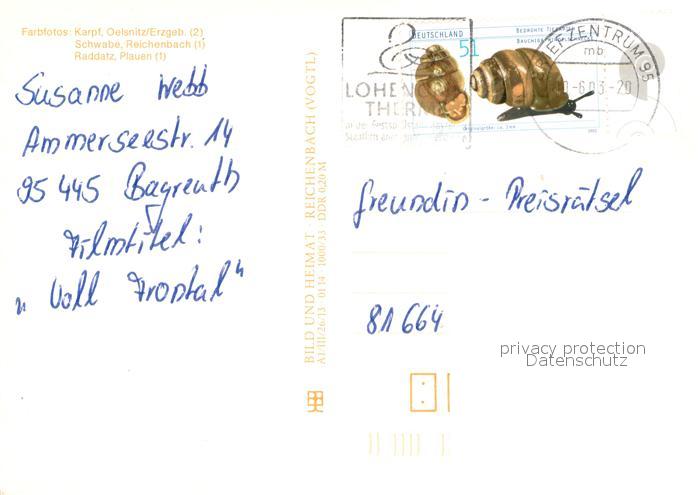 Farbfotos: Karpf, Oelsnitz/Erzgeb. (2)
Schwabe, Reichenbach (1)
Raddatz, Plauen (1)
Susanne Webb
Ammerseestr. 14
95 445 Bayreuth
Filmtitel:
„Voll Frontal“
BILD UND HEIMAT REICHENBACH (VOGTL)
A1/III/26/13 01 14 1000/33 DDR 0,20 M
DEUTSCHLAND
51
BEDROHTE TIERARTEN
2002
BRIEFZENTRUM 95
mb
-6.03-20
LOHENGRIN
THERME
freundin - Preisrätsel
81 664
privacy protection
Datenschutz